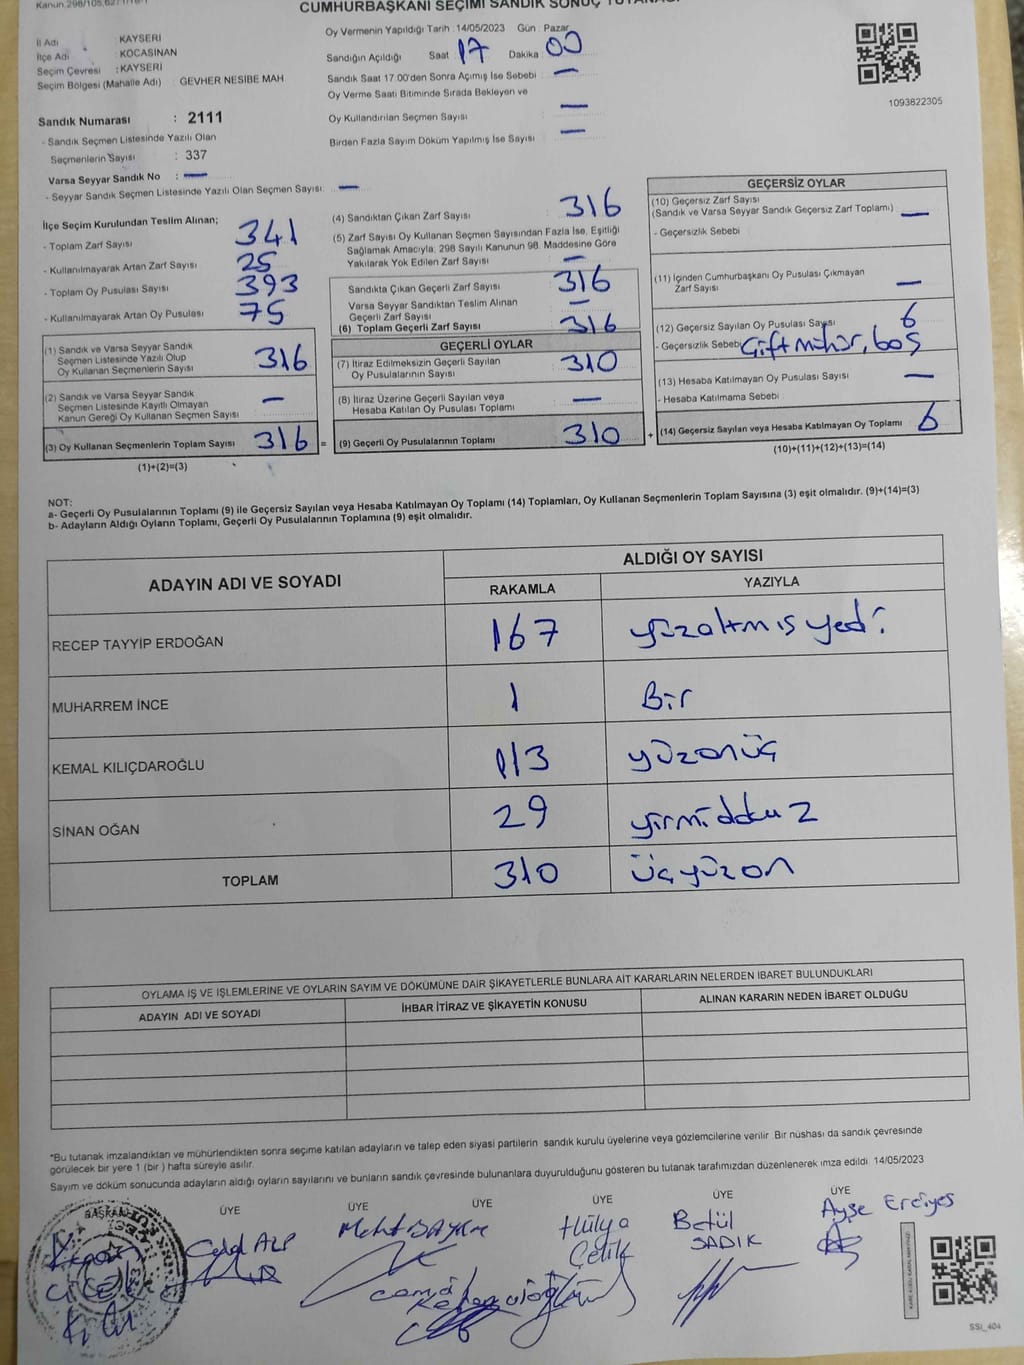 Kanun 298/105,
CUMHURBAŞKANI SEÇİMİ SANDIK SONUÇ TUTANAĞI
İl Adı : KAYSERİ
İlçe Adı : KOCASİNAN
Seçim Çevresi : KAYSERİ
Seçim Bölgesi (Mahalle Adı) : GEVHER NESİBE MAH
Sandık Numarası : 2111
- Sandık Seçmen Listesinde Yazılı Olan
Seçmenlerin Sayısı : 337
Varsa Seyyar Sandık No : —
- Seyyar Sandık Seçmen Listesinde Yazılı Olan Seçmen Sayısı: —
Oy Vermenin Yapıldığı Tarih : 14/05/2023 Gün : Pazar
Sandığın Açıldığı Saat 17 Dakika 00
Sandık Saat 17:00'den Sonra Açımış İse Sebebi : —
Oy Verme Saati Bitiminde Sırada Bekleyen ve
Oy Kullandırılan Seçmen Sayısı : —
Birden Fazla Sayım Döküm Yapılmış İse Sayısı : —
1093822305
İlçe Seçim Kurulundan Teslim Alınan;
- Toplam Zarf Sayısı : 341
- Kullanılmayarak Artan Zarf Sayısı : 25
- Toplam Oy Pusulası Sayısı : 393
- Kullanılmayarak Artan Oy Pusulası : 75
(1) Sandık ve Varsa Seyyar Sandık
Seçmen Listesinde Yazılı Olup
Oy Kullanan Seçmenlerin Sayısı : 316
(2) Sandık ve Varsa Seyyar Sandık
Seçmen Listesinde Kayıtlı Olmayan
Kanun Gereği Oy Kullanan Seçmen Sayısı : —
(3) Oy Kullanan Seçmenlerin Toplam Sayısı : 316 =
(1)+(2)=(3)
(4) Sandıktan Çıkan Zarf Sayısı : 316
(5) Zarf Sayısı Oy Kullanan Seçmen Sayısından Fazla İse, Eşitliği
Sağlamak Amacıyla; 298 Sayılı Kanunun 98. Maddesine Göre
Yakılarak Yok Edilen Zarf Sayısı : —
Sandıkta Çıkan Geçerli Zarf Sayısı : 316
Varsa Seyyar Sandıktan Teslim Alınan
Geçerli Zarf Sayısı : —
(6) Toplam Geçerli Zarf Sayısı : 316
GEÇERLİ OYLAR
(7) İtiraz Edilmeksizin Geçerli Sayılan
Oy Pusulalarının Sayısı : 310
(8) İtiraz Üzerine Geçerli Sayılan veya
Hesaba Katılan Oy Pusulası Toplamı : —
(9) Geçerli Oy Pusulalarının Toplamı : 310 +
GEÇERSİZ OYLAR
(10) Geçersiz Zarf Sayısı
(Sandık ve Varsa Seyyar Sandık Geçersiz Zarf Toplamı) : —
- Geçersizlik Sebebi
(11) İçinden Cumhurbaşkanı Oy Pusulası Çıkmayan
Zarf Sayısı : —
(12) Geçersiz Sayılan Oy Pusulası Sayısı : 6
- Geçersizlik Sebebi Çift mühür, boş
(13) Hesaba Katılmayan Oy Pusulası Sayısı : —
- Hesaba Katılmama Sebebi
(14) Geçersiz Sayılan veya Hesaba Katılmayan Oy Toplamı : 6
(10)+(11)+(12)+(13)=(14)
NOT:
a- Geçerli Oy Pusulalarının Toplamı (9) ile Geçersiz Sayılan veya Hesaba Katılmayan Oy Toplamı (14) Toplamları, Oy Kullanan Seçmenlerin Toplam Sayısına (3) eşit olmalıdır. (9)+(14)=(3)
b- Adayların Aldığı Oyların Toplamı, Geçerli Oy Pusulalarının Toplamına (9) eşit olmalıdır.
ADAYIN ADI VE SOYADI ALDIĞI OY SAYISI
RAKAMLA YAZIYLA
RECEP TAYYİP ERDOĞAN 167 yüzaltmış yedi
MUHARREM İNCE 1 Bir
KEMAL KILIÇDAROĞLU 113 yüzonüç
SİNAN OĞAN 29 yirmidokuz
TOPLAM 310 üçyüzon
OYLAMA İŞ VE İŞLEMLERİNE VE OYLARIN SAYIM VE DÖKÜMÜNE DAİR ŞİKAYETLERLE BUNLARA AİT KARARLARIN NELERDEN İBARET BULUNDUKLARI
ADAYIN ADI VE SOYADI İHBAR İTİRAZ VE ŞİKAYETİN KONUSU ALINAN KARARIN NEDEN İBARET OLDUĞU
*Bu tutanak imzalandıktan ve mühürlendikten sonra seçime katılan adayların ve talep eden siyasi partilerin sandık kurulu üyelerine veya gözlemcilerine verilir. Bir nüshası da sandık çevresinde
görülecek bir yere 1 (bir ) hafta süreyle asılır.
Sayım ve döküm sonucunda adayların aldığı oyların sayılarını ve bunların sandık çevresinde bulunanlara duyurulduğunu gösteren bu tutanak tarafımızdan düzenlenerek imza edildi 14/05/2023
BAŞKAN ÜYE ÜYE ÜYE ÜYE ÜYE
ALP
Hülya
Çelik
Betül
SADIK
Ayşe Erciyes
SSİ_404